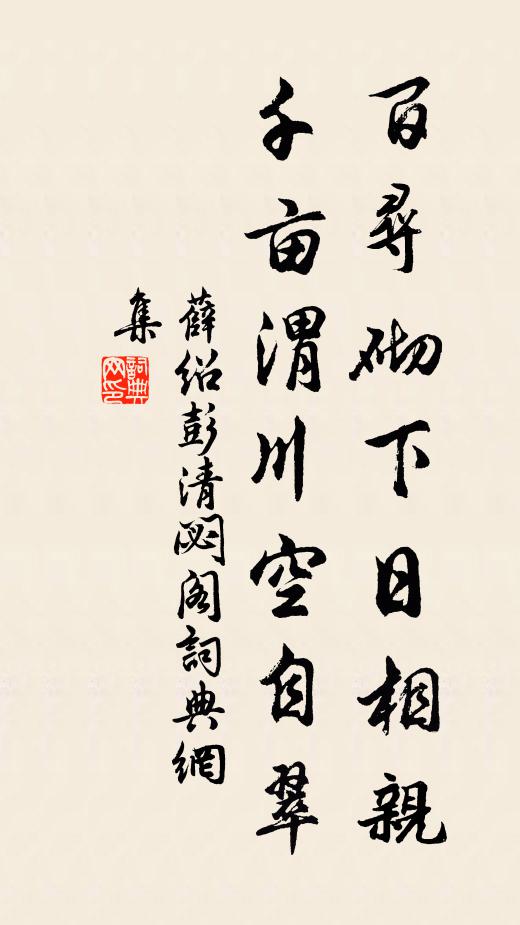 百尋砌下日相親
千亩渭川空自翠
薛紹彭清閟閣詞典網
集
詞典网印